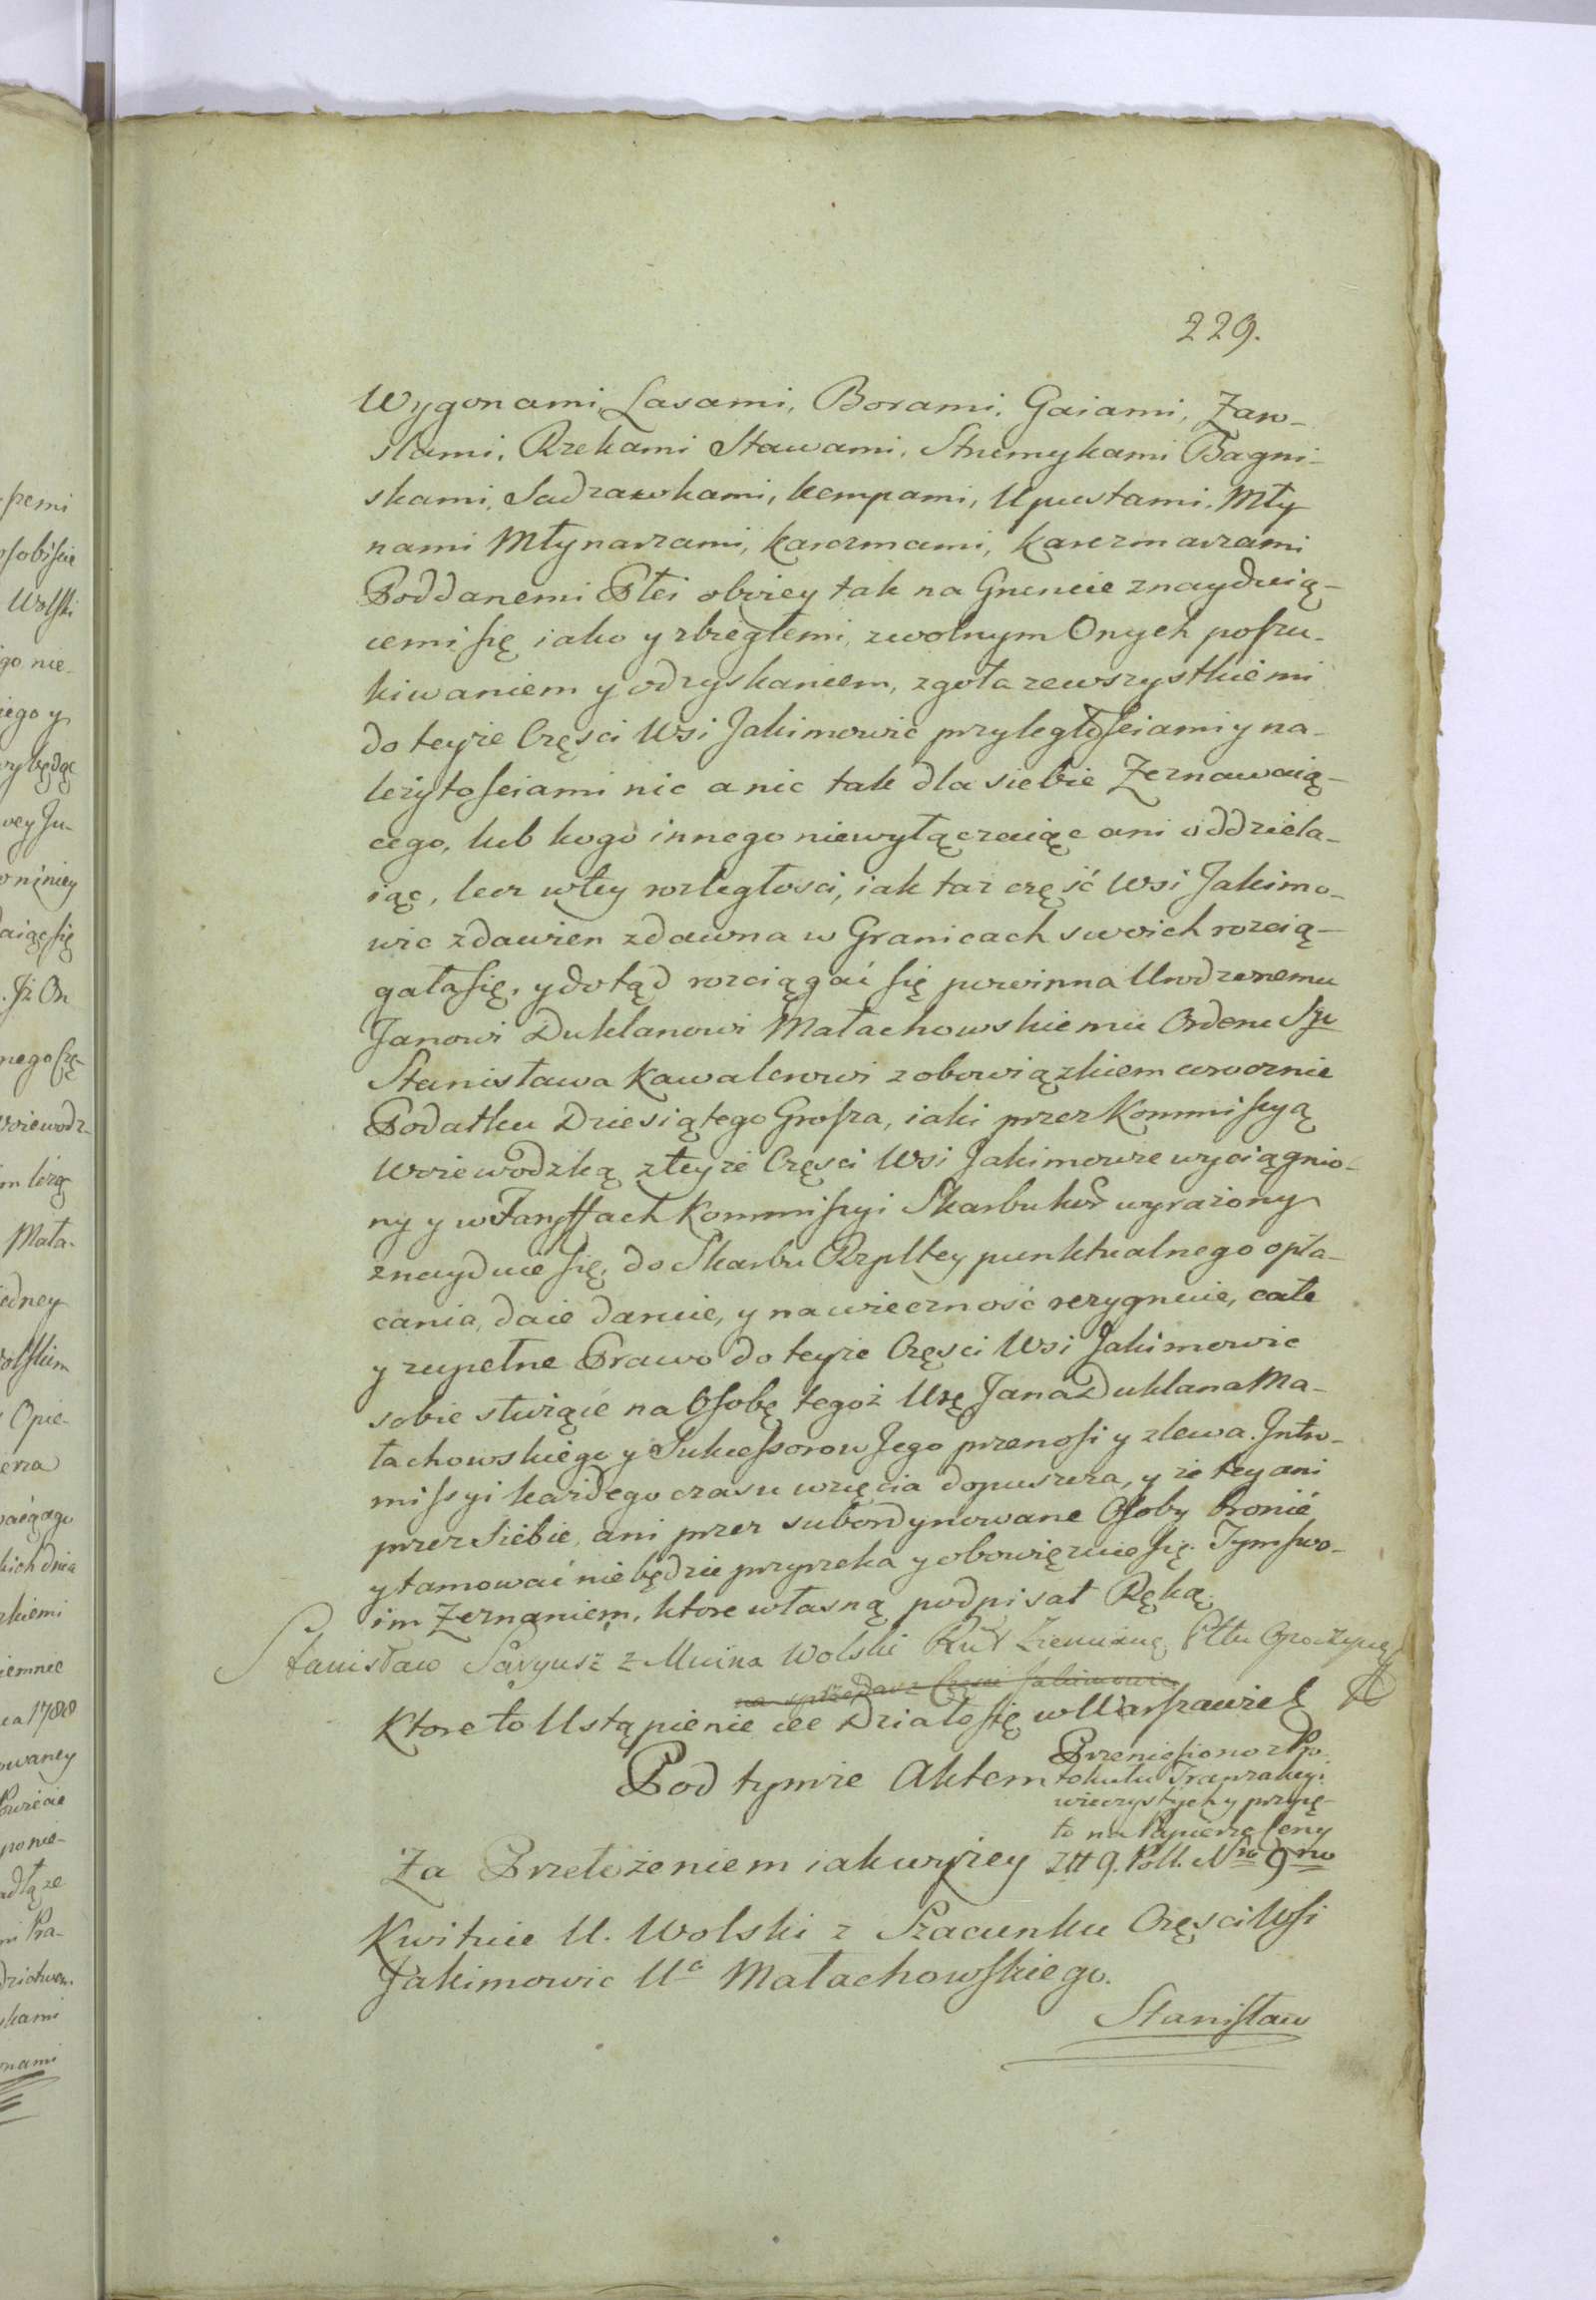 229.
Wygonami, Lasami, Borami, Gaiami, Zaro-
slami, Rzekami Stawami, Strumykami Bagni-
skami, Sadzawkami, kempami, Upustami, Mły
nami Młynarzami, karczmami, karczmarzami
Poddanemi Płci oboiey tak na Gruncie znayduią-
cemi się iako y zbiegłemi, zwolnym Onych poszu-
kiwaniem y odzyskaniem, zgoła zewszystkiemi
do teyże Części Wsi Jakimowic przyległościami y na-
leżytościami nic a nic tak dla siebie Zeznawaią-
cego, lub kogo innego niewyłączaiąc ani oddziela-
iąc, lecz wtey rozległosci, iak taż część Wsi Jakimo-
wic zdawien zdawna w Granicach swoich rozcią-
gała się, y dotąd rozciągać się powinna Urodzonemu
Janowi Duklanowi Małachowskiemu Orderu Sgo
Stanisława Kawalerowi z obowiązkiem corocznie
Podatku Dziesiątego Grosza, iaki przez Kommissyą
Woiewodzką zteyże Części Wsi Jakimowic wyciągnio-
ny y w Taryffach Kommissyi Skarbu kor wyrażony
znayduie się, do Skarbu Rzpltey punktualnego opła-
cania, daie daruie, y na wieczność rezygnuie, całe
y zupełne Prawo do teyże Części Wsi Jakimowic
sobie służące na Osobę tegoż Urę Jana Duklana Ma-
łachowskiego y Sukcessorow Jego przenosi y zlewa. Intro-
missyi każdego czasu wzięcia dopuszcza, y że tey ani
przez siebie, ani przez subordynowane Osoby bronić
y tamować niebędzie przyrzeka y obowięzuie się. Tym swo-
im Zeznaniem, ktore własną podpisał Ręką.
Stanisław Saryusz z Mnina Wolski Ziemianę Pttu Opoczynę
na sprzedaż Części Jakimowic
Ktore to Ustąpienie cee Działo się w Warszawie
Pod tymże Aktem
Przeniesiono z Pro
tokułu Tranzakcyi
wieczystych y przyię-
to na Papierze Ceny
Za Przełożeniem iakwyżey Ztt 9. Poll. Nro 9no
Kwituie U. Wolski z Szacunku Części Wsi
Jakimowic Uo Małachowskiego.
Stanisław